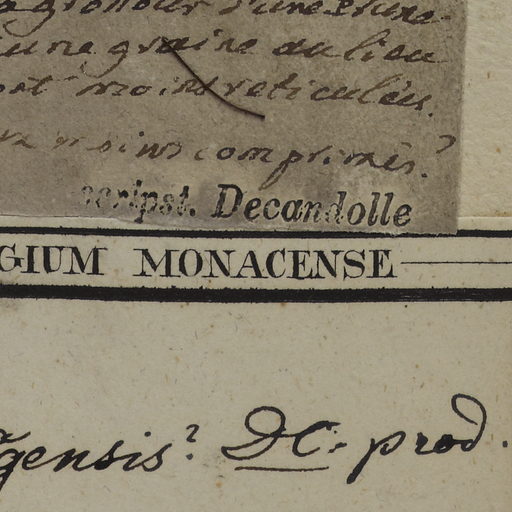 la grosseur d'une Prune.
une graine au lieu
sont moins reticulées.
moins comprimés?
scripst. Decandolle
GIUM MONACENSE
gensis? DC. prod.